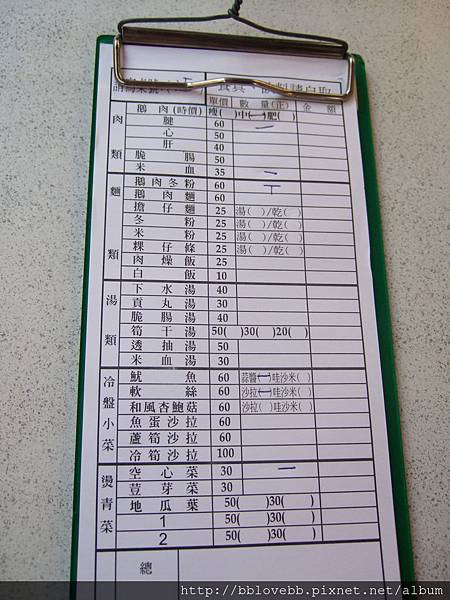 單價 數量(正) 金額
肉類
鵝肉(時價) 瘦( )中( )肥( )
腱 60
心 50
肝 40
脆腸 50
米血 35
麵類
鵝肉冬粉 60
鵝肉麵 60
擔仔麵 25 湯( )/乾( )
冬粉 25 湯( )/乾( )
米粉 25 湯( )/乾( )
粿仔條 25 湯( )/乾( )
肉燥飯 25
白飯 10
湯類
下水湯 40
貢丸湯 30
脆腸湯 40
筍干湯 50( )30( )20( )
透抽湯 50
米血湯 30
冷盤小菜
魷魚 60 蒜醬( )哇沙米( )
軟絲 60 沙拉( )哇沙米( )
和風杏鮑菇 60 沙拉( )哇沙米( )
魚蛋沙拉 60
蘆筍沙拉 60
冷筍沙拉 100
燙青菜
空心菜 30
荳芽菜 30
地瓜葉 50( )30( )
1 50( )30( )
2 50( )30( )
總
http://bblovebb.pixnet.net/album